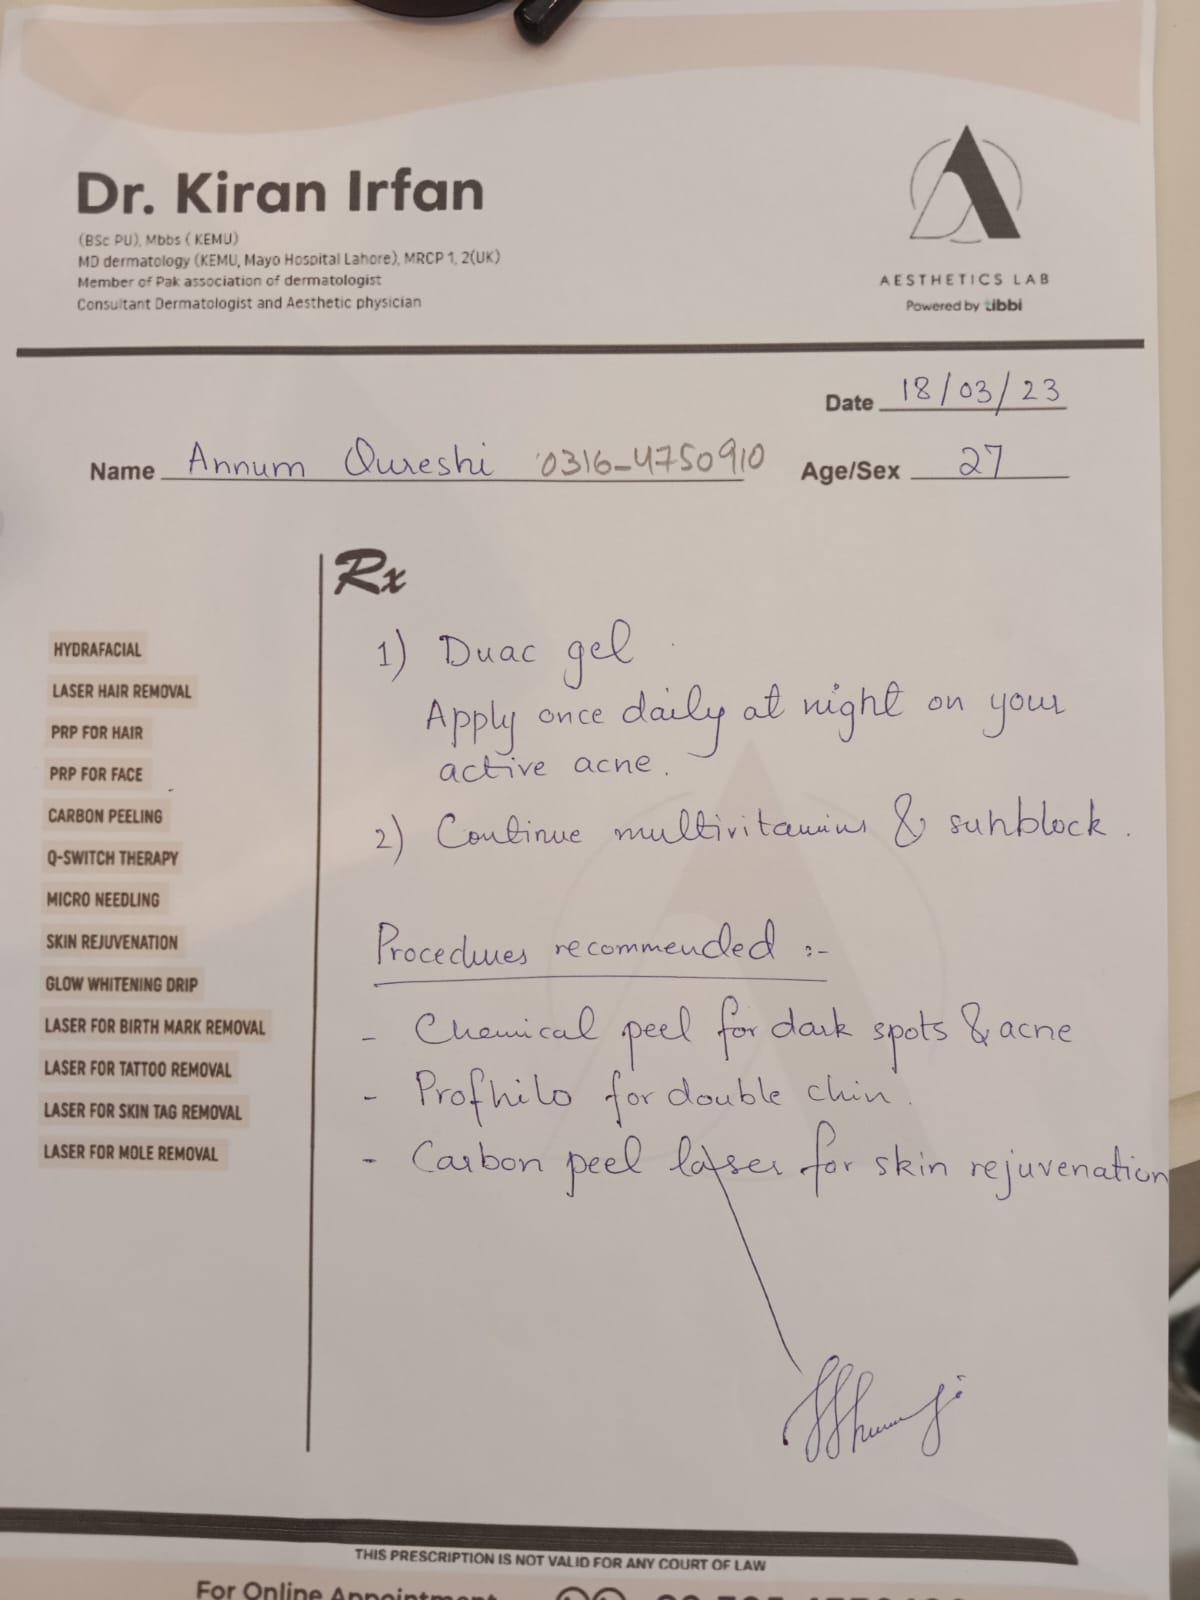 Dr. Kiran Irfan
(BSc PU), Mbbs ( KEMU)
MD dermatology (KEMU, Mayo Hospital Lahore), MRCP 1, 2(UK)
Member of Pak association of dermatologist
Consultant Dermatologist and Aesthetic physician
AESTHETICS LAB
Powered by tibbi
Date 18/03/23
Name Annum Qureshi 0316-4750910 Age/Sex 27
Rx
HYDRAFACIAL
LASER HAIR REMOVAL
PRP FOR HAIR
PRP FOR FACE
CARBON PEELING
Q-SWITCH THERAPY
MICRO NEEDLING
SKIN REJUVENATION
GLOW WHITENING DRIP
LASER FOR BIRTH MARK REMOVAL
LASER FOR TATTOO REMOVAL
LASER FOR SKIN TAG REMOVAL
LASER FOR MOLE REMOVAL
1) Duac gel.
Apply once daily at night on your
active acne.
2) Continue multivitamins & sunblock.
Procedures recommended :-
- Chemical peel for dark spots & acne
- Profhilo for double chin.
- Carbon peel laser for skin rejuvenation
THIS PRESCRIPTION IS NOT VALID FOR ANY COURT OF LAW
For Online Appointment